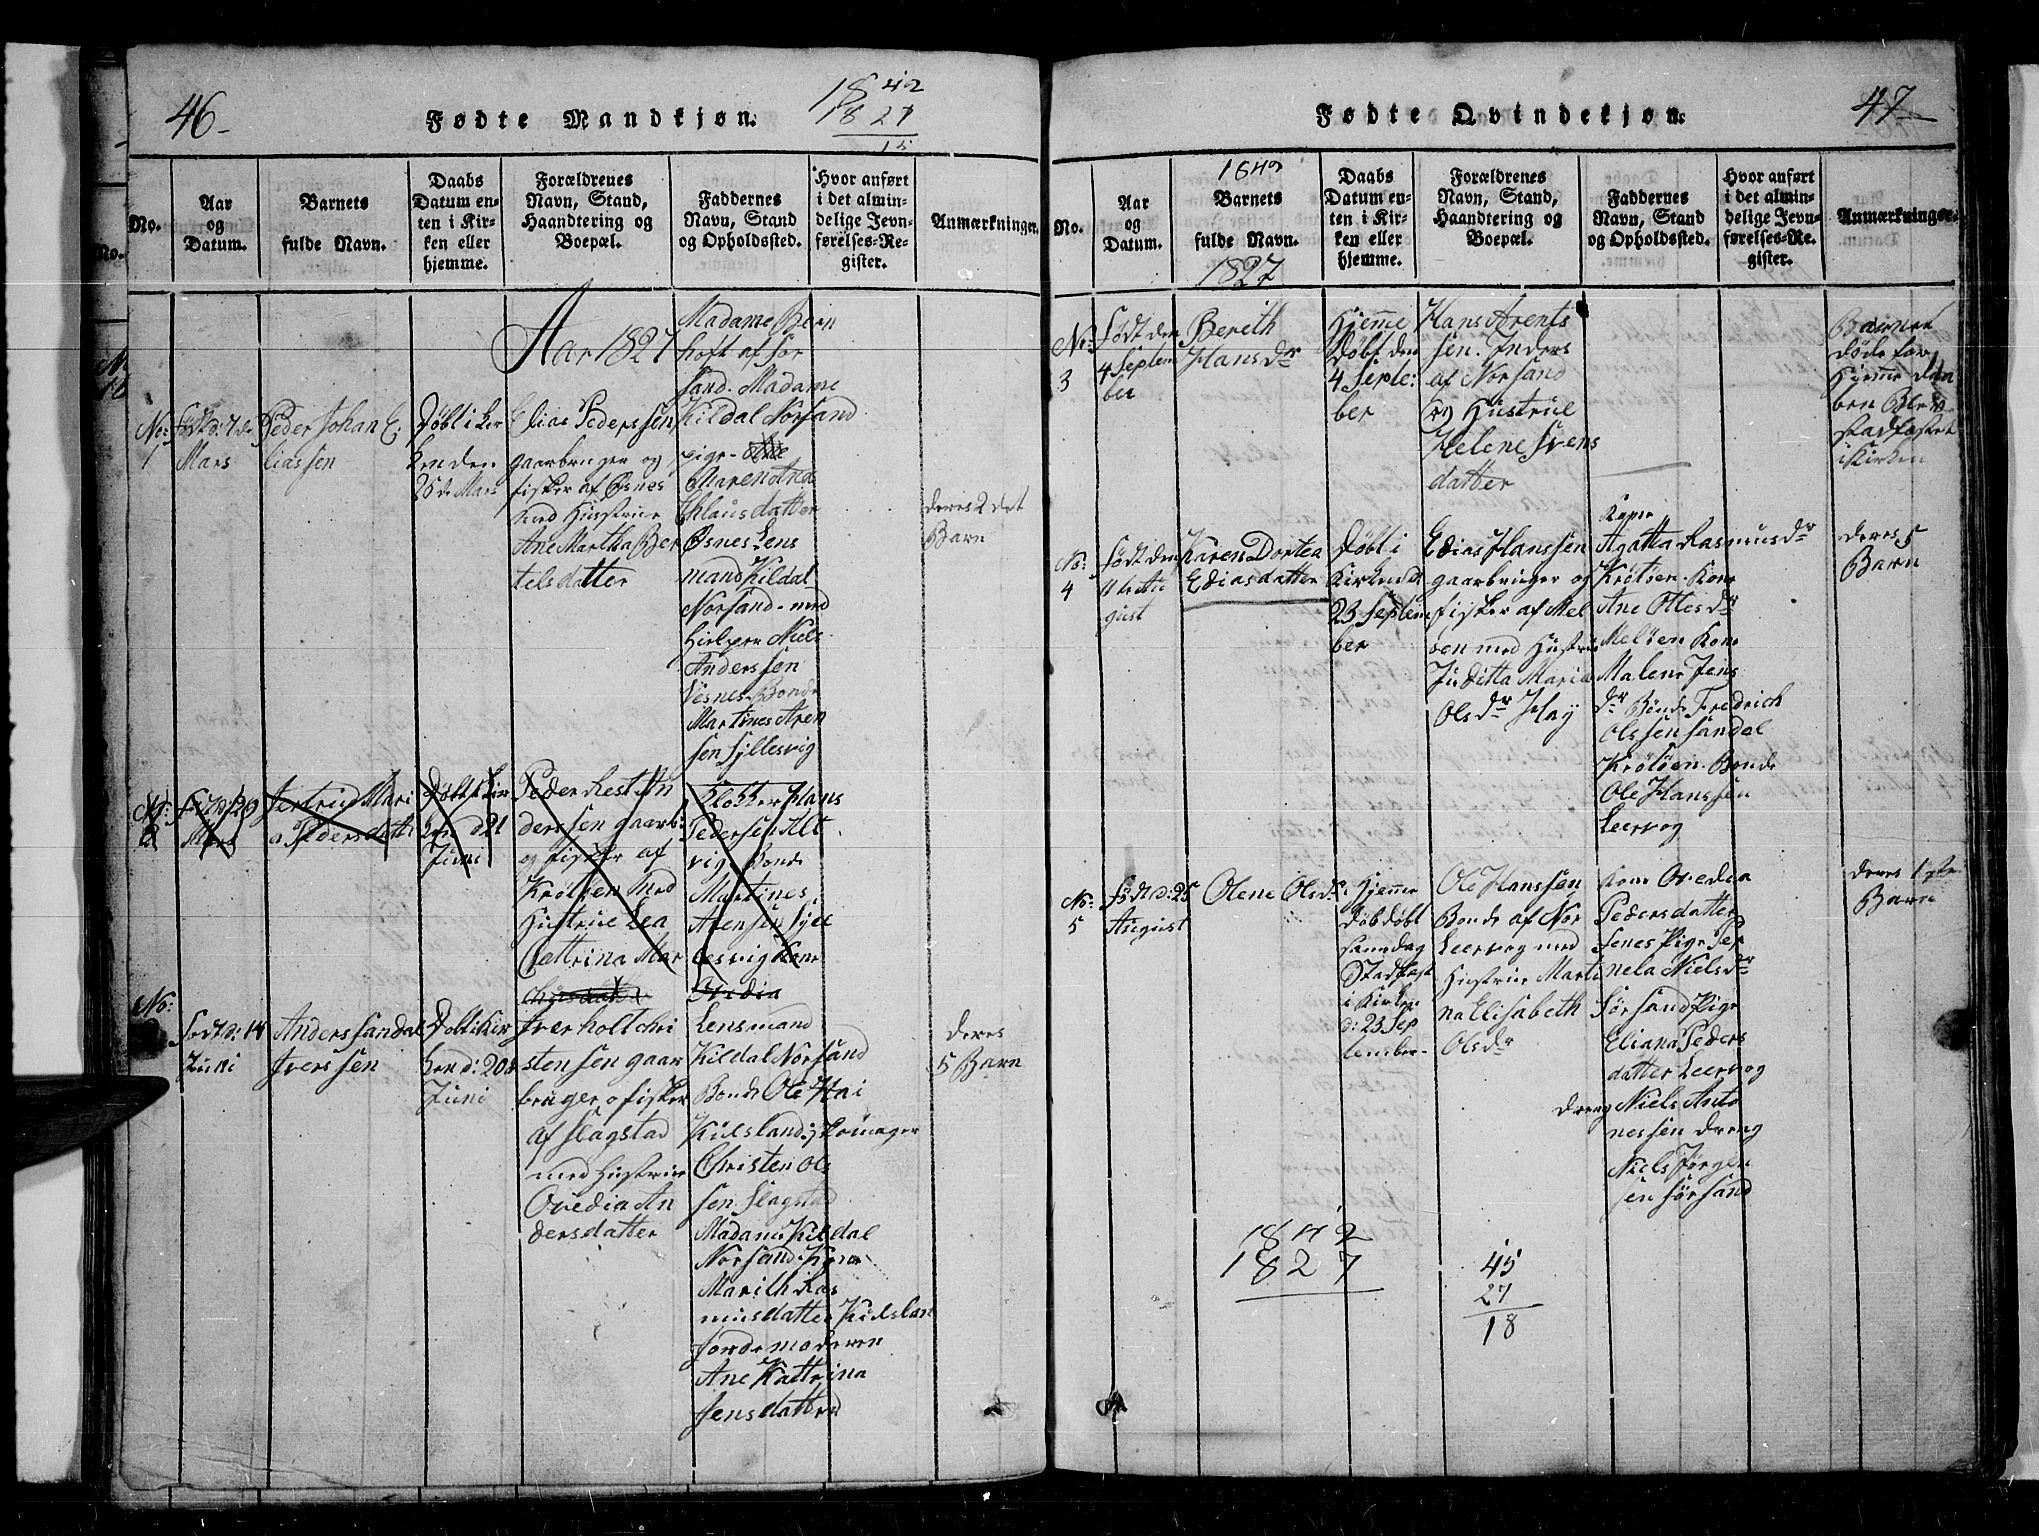 46-
Fødte Mandkjøn.
1842
1827
15
No.
Aar
og
Datum.
Barnets
fulde Navn.
Daabs
Datum en-
ten i Kir-
ken eller
hjemme.
Forældrenes
Navn, Stand,
Haandtering og
Boepæl.
Faddernes
Navn, Stand
og Opholdssted.
Hvor anført
i det almin-
delige Jevn-
førelses-Re-
gister.
Anmærkninger.
Aar 1827
No:
1
Født d: 7de
Mars
Peder Johan E.
liassen
Døbt i kir
ken den
25de Mars
Elias Pederssen
gaarbruger og
fisker af Øsnes
med Hustrue
Ane Martha Ber
telsdatter
Madame Bern
hoft af Sør
sand. Madame
Kildal Norsand
pige
Maren Ana
Chlausdatter
Øsnes Lens
mand Kildal
Norsand - med
hielper Niels
Anderssen
Vesnes. Bonde
Martines Aren
sen Syllesvig
deres 2det
Barn
No:
2
Mars
Jertrud Mari
a Pedersdatt
Døbt i kir
ken d 21
Juni
Peder Rest An
derssen gaarb:
og fisker af
Krøttøen med
Hustrue Lea
Cattrina Mar
Klokker Hans
Pedersen Alt
vig. Bonde
Martines
Arensen Sylle
lesvig Kone
Ovedia
No:
Født d: 14
Juni
Anders Sandal
Iverssen
Døbt i Kir
ken d: 20de
Juni
Iver holt Chri
stenssen gaar
bruger o fisker
af Slagstad
med Hustrue
Ovedia An
dersdatter
Lensmand
Kildal Norsand
Bonde Ole Hai
Kidsland;
Christen Ols
sen Slagstad
Madame Kildal
Norsand: Kone
Marith Ras
musdatter Kidslan
Jordemoderen
Ane Kattrina
Jensdatter
deres
5 Barn
Fødte Qvindekjøn.
47
No.
Aar
og
Datum.
1842
Barnets
fulde Navn.
1827
Daabs
Datum en-
ten i Kir-
ken eller
hjemme.
Forældrenes
Navn, Stand,
Haandtering og
Boepæl.
Faddernes
Navn, Stand
og Opholdssted.
Hvor anført
i det almin-
delige Jevn-
førelses-Re-
gister.
Anmærkninger.
No:
3
Født den
4 Septem
ber
Bereth
Hansdr
Hjemme
Døbt den
4 Septe:
ber
Hans Arents
sen. Inders
af Norsand
og Hustrue
Helene Svens
datter
Barnet
døde før
Hjemme Daa
ben Blev
stadfæstet
i Kirken
No:
4
Født den
11te Au
gust
Karen Dortea
Ediasdatter
Døbt i
Kirken d
23 Septem
ber
Edias Hanssen
gaarbruger og
fisker af Mel
øen med Hustru
Juditta Maria
Olsdr Høy
Kone
Agatta Rasmusdr
Krøtøen. Kone
Ane Ottesdr
Meløen Kone
Malene Jens
dr Bonde Fredrich
Olssen Sandal
Krøtøen. Bonde
Ole Hanssen
Leervog
deres 5
Barn
No:
5
Født d: 25
August
Olene Olsdr
Hjemme
Døbt
Stadfæst
i Kirken
d: 23 Sep
tember
Ole Hanssen
Bonde af Nor
Leervog med
Hustrue Marti
na Elisabeth
Olsdr
Kone Ovedia
Pedersdatter
Senes Pige Per
nela Nielsdr
Sørsand Pige
Eliana Peders
datter Leervog
dreng Niels Anto
nessen Dreng
Niels Jørgen
sen Sørsand
deres 1ste
Barn
1842
1827
45
27
18